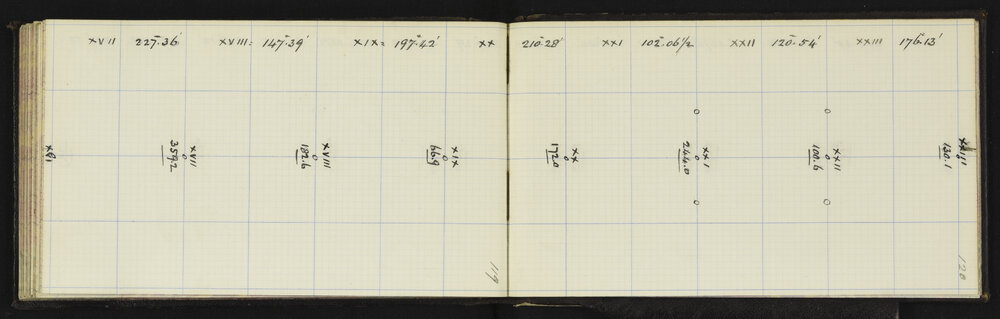 XVII 227°-36' XVIII = 147°-39' XIX = 197°-42' XX 210°-28' XXI 102°-06½' XXII 120°-54' XXIII 176°-13'
XVI
XVII
359.2
XVIII
182.6
XIX
66.9
XX
172.0
XXI
244.0
XXII
100.6
XXIII
130.1
119
120